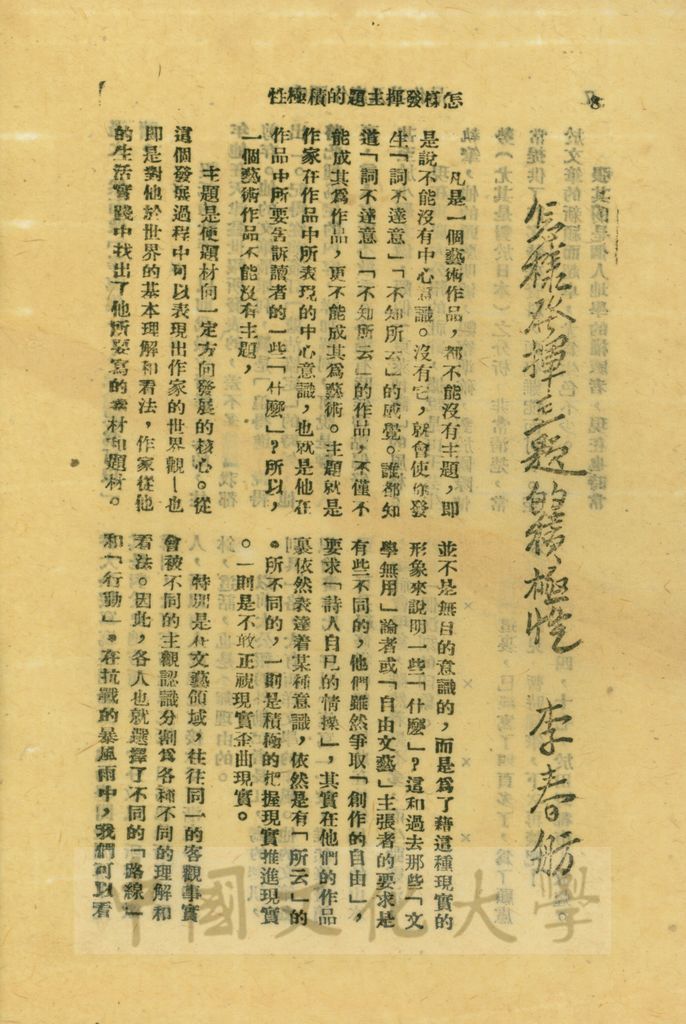 8
怎樣發揮主題的積極性
怎樣發揮主題的積極性 李春舫
凡是一個藝術作品，都不能沒有主題，即
是說不能沒有中心意識。沒有它，就會使你發
生「詞不達意」「不知所云」的感覺。誰都知
道「詞不達意」「不知所云」的作品，不僅不
能成其為作品，更不能成其為藝術。主題就是
作家在作品中所表現的中心意識，也就是他在
作品中所要告訴讀者的一些「什麼」？所以，
一個藝術作品不能沒有主題，
主題是使題材向一定方向發展的核心。從
這個發展過程中可以表現出作家的世界觀—也
即是對他於世界的基本理解和看法，作家從他
的生活實踐中找出了他所要寫的素材和題材。
並不是無目的意識的，而是為了藉這種現實的
形象來說明一些「什麼」？這和過去那些「文
學無用」論者或「自由文藝」主張者的要求是
有些不同的，他們雖然爭取「創作的自由」，
要求「詩人自己的情操」，其實在他們的作品
裏依然表達着某種意識，依然是有「所云」的
。所不同的，一則是積極的把握現實推進現實
。一則是不敢正視現實歪曲現實。
特別是在文藝領域，往往同一的客觀事實
會被不同的主觀認識分割為各種不同的理解和
看法。因此，各人也就選擇了不同的「路線」
和「行動」。在抗戰的暴風雨中，我們可以看
中國文化大學